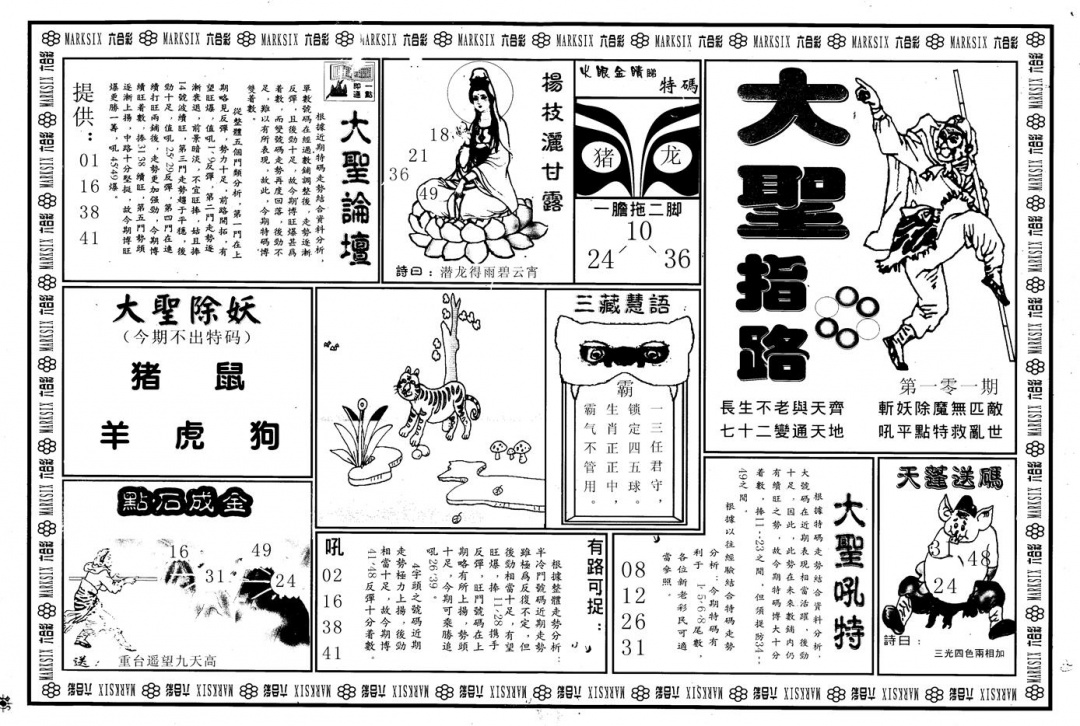 MARKSIX 六合彩 MARKSIX 六合彩 MARKSIX 六合彩 MARKSIX 六合彩 MARKSIX 六合彩 MARKSIX 六合彩 MARKSIX 六合彩 MARKSIX 六合彩 MARKSIX 六合彩 MARKSIX 六合彩
大聖指路
第一零一期
斬妖除魔無匹敵
吼平點特救亂世
長生不老與天齊
七十二變通天地
火眼金睛睇
特碼
猪
龙
一膽拖二脚
10
24
36
楊枝灑甘露
18
21
36
49
詩曰：潜龙得雨碧云宵
一點即通
大聖論壇
根據近期特碼走勢結合資料分析，
單數號碼在經過數鋪調整後，走勢逐漸
反彈，且後勁十足，故今期博旺爆甚爲
着數，而變號碼走勢再度回落，後勁不
足，雖以有所表現，故此，今期特碼博
雙着數。
從整體五個門類分析，第一門在上
期略見反彈，勢力十足，前路開拓，有
望旺爆，值吼1·9反彈，第二門走勢逐
漸衰退，前景暗淡，不宜旺捧，姑且捧
14號波續旺，第三門走勢趨于平穩，後
勁十足，值吼25·29反彈，第四門在連
續打旺兩鋪後，走勢更加强勁，今期博
續旺看數，捧31·38續旺，第五門勢頭
逐漸上揚，中路十分堅挺，故今期博旺
爆更勝一籌，吼45·49爆。
提供：
01
16
38
41
大聖除妖
（今期不出特码）
猪 鼠
羊 虎 狗
三藏慧語
霸
一三任君守，
锁定四五球。
生肖正正中，
霸气不管用。
點石成金
16
49
31
24
送：重台遥望九天高
有路可捉：
根據整體走勢分析：
半冷門號碼近期走勢
雖極爲反復不定，但
後勁相當十足，有望
旺爆，捧11·28携手
反彈，旺門號碼在上
期略有所上揚，勢頭
十足，今期可乘勝追
吼26·39。
4字頭之號碼近期
走勢極力上揚，後勁
相當十足，故今期博
41·48反彈十分着數。
吼
02
16
38
41
大聖吼特
根據特碼走勢結合資料分析，
大號碼在近期表現相當活躍，後勁
十足，因此，此勢在未來數鋪内仍
有續旺之勢，故今期特碼博大十分
着數，捧11--23之間，但須提防34--
49之間。
根據以往經驗結合特碼走勢
分析：今期特碼有
利于1·5·6·8尾數，
各位新老彩民可適
當參照。
08
12
26
31
天蓬送碼
3
48
24
詩曰：
三光四色兩相加